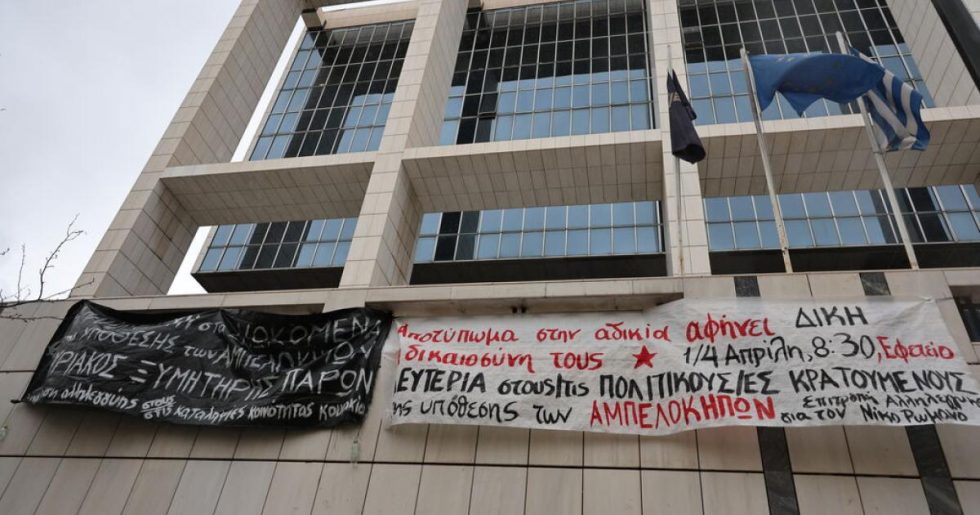 ΥΠΟΘΕΣΗΣ των ΑΜΠΕΛΟΚΗΠΩΝ
ΥΡΙΑΚΟΣ ΞΥΜΗΤΗΡΗΣ ΠΑΡΩΝ
αλληλεγγύης στους
στις καταληψίες κοινότητας
Αποτύπωμα στην αδικία αφήνει
δικαιοσύνη τους ★
ΔΙΚΗ
1/4 Απρίλη, 8:30, Εφετείο
ΕΥΤΕΡΙΑ στους/τις ΠΟΛΙΤΙΚΟΥΣ/ΕΣ ΚΡΑΤΟΥΜΕΝΟΥΣ
της υπόθεσης των ΑΜΠΕΛΟΚΗΠΩΝ
Επιτροπή Αλληλεγγύης
για τον Νίκο Ρωμανό